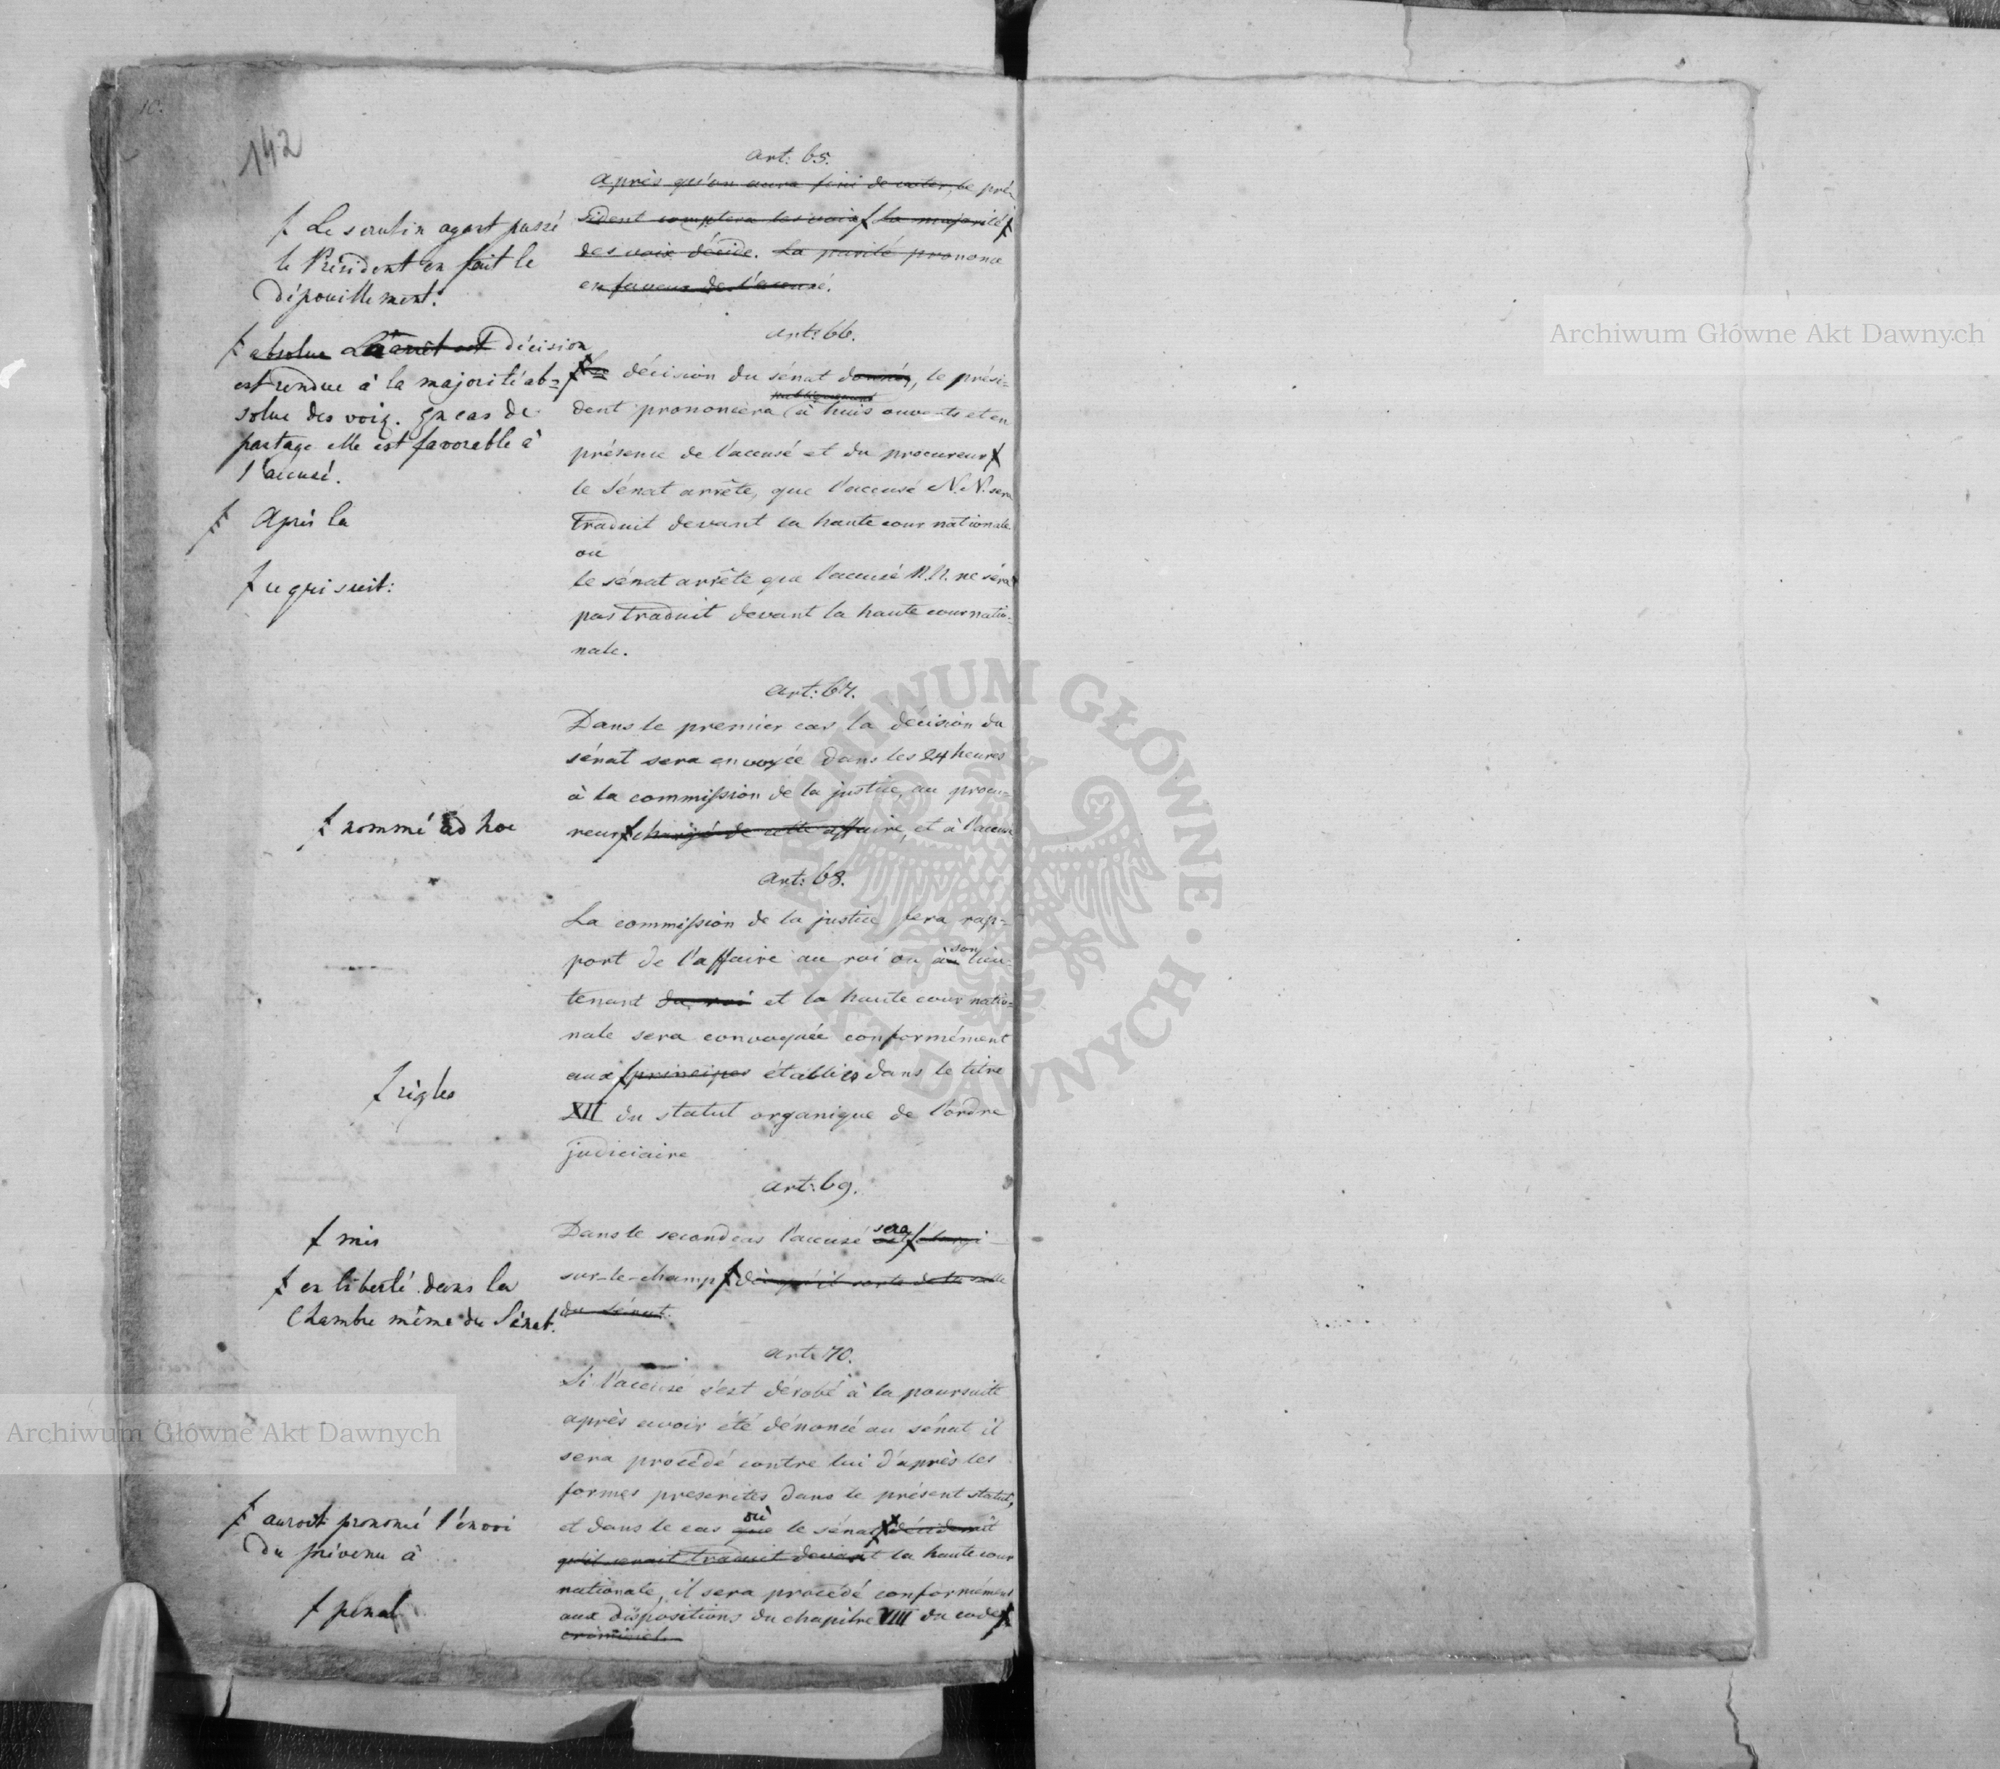 142
Art: 65.
Après qu'on aura fini de voter, le pré-
sident comptera les voix la majorité
des voix décide. La parité prononce
en faveur de l'accusé.
Le scrutin ayant passé
le Président en fait le
dépouillement.
Art: 66.
absolue La arrêt est décision
est rendue à la majorité ab=
solue des voix. En cas de
partage elle est favorable à
l'accusé.
Après la
ce qui suit:
La décision du sénat donnée, le prési-
publiquement
dent prononcera à huis ouverts et en
présence de l'accusé et du procureur
le Sénat arrête, que l'accusé N.N. sera
traduit devant la haute cour nationale
ou
le sénat arrête que l'accusé N.N. ne sera
pas traduit devant la haute cour natio-
nale.
Art: 67.
Dans le premier cas la decision du
sénat sera envoyée dans les 24 heures
à la commission de la justice, au procu-
reur chargé de cette affaire, et à l'accusé
nommé ad hoc
Art: 68.
La commission de la justice, fera rap-
port de l'affaire au roi ou à son lieu-
tenant du roi et la haute cour natio-
nale sera convoquée conformément
aux principes établies dans le titre
XII du statut organique de l'ordre
judiciaire
règles
Art: 69.
Dans le second cas l'accusé est sera élargi
sur-le-champ dès qu'il sorte de la salle
du sénat.
mis
en liberté dans la
Chambre même du Sénat.
Art: 70.
Si l'accusé s'est dérobé à la poursuite
après avoir été dénoncé au sénat, il
sera procédé contre lui d'après les
formes prescrites dans le présent statut,
et dans le cas que où le sénat déciderait
qu'il serait traduit devant la haute cour
nationale, il sera procédé conformément
aux dispositions du chapitre VIII du code
criminel.
auroit prononcé l'envoi
du prévenu à
pénal
Archiwum Główne Akt Dawnych
Archiwum Główne Akt Dawnych
ARCHIWUM GŁÓWNE · AKT DAWNYCH ·